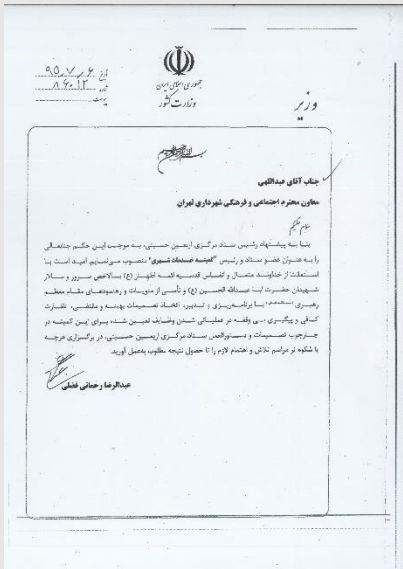 جمهوری اسلامی ایران
وزارت کشور
وزیر
تاریخ ۹۵٫۷٫۶
۸۶۰۱۲
پیوست
جناب آقای عبداللهی
معاون محترم اجتماعی و فرهنگی شهرداری تهران
سلام علیکم
بنا به پیشنهاد رئیس ستاد مرکزی اربعین حسینی، به موجب این حکم جنابعالی
را به عنوان عضو ستاد و رئیس "کمیته خدمات شهری" منصوب می‌نمایم. امید است با
استعانت از خداوند متعال و انفاس قدسیه ائمه اطهار (ع) بالاخص سرور و سالار
شهیدان حضرت ابا عبدالله الحسین (ع) و تأسی از منویات و رهنمودهای مقام معظم
رهبری با برنامه‌ریزی و تدبیر، اتخاذ تصمیمات بهینه و مقتضی، نظارت
کافی و پیگیری بی وقفه در عملیاتی شدن وظایف تعیین شده برای این کمیته در
چارچوب تصمیمات و دستورالعمل ستاد مرکزی اربعین حسینی، در برگزاری هرچه
با شکوه تر مراسم تلاش و اهتمام لازم را تا حصول نتیجه مطلوب به‌عمل آورید.
عبدالرضا رحمانی فضلی